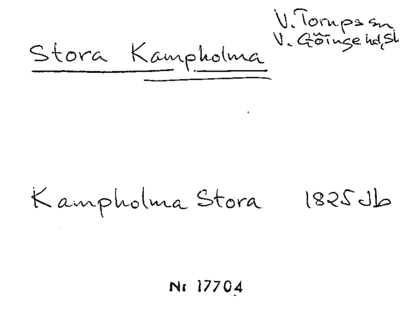 V. Torups sn
V. Göinge hd, Sk
Stora Kampholma
Kampholma Stora 1825 Jb
Nr 17704